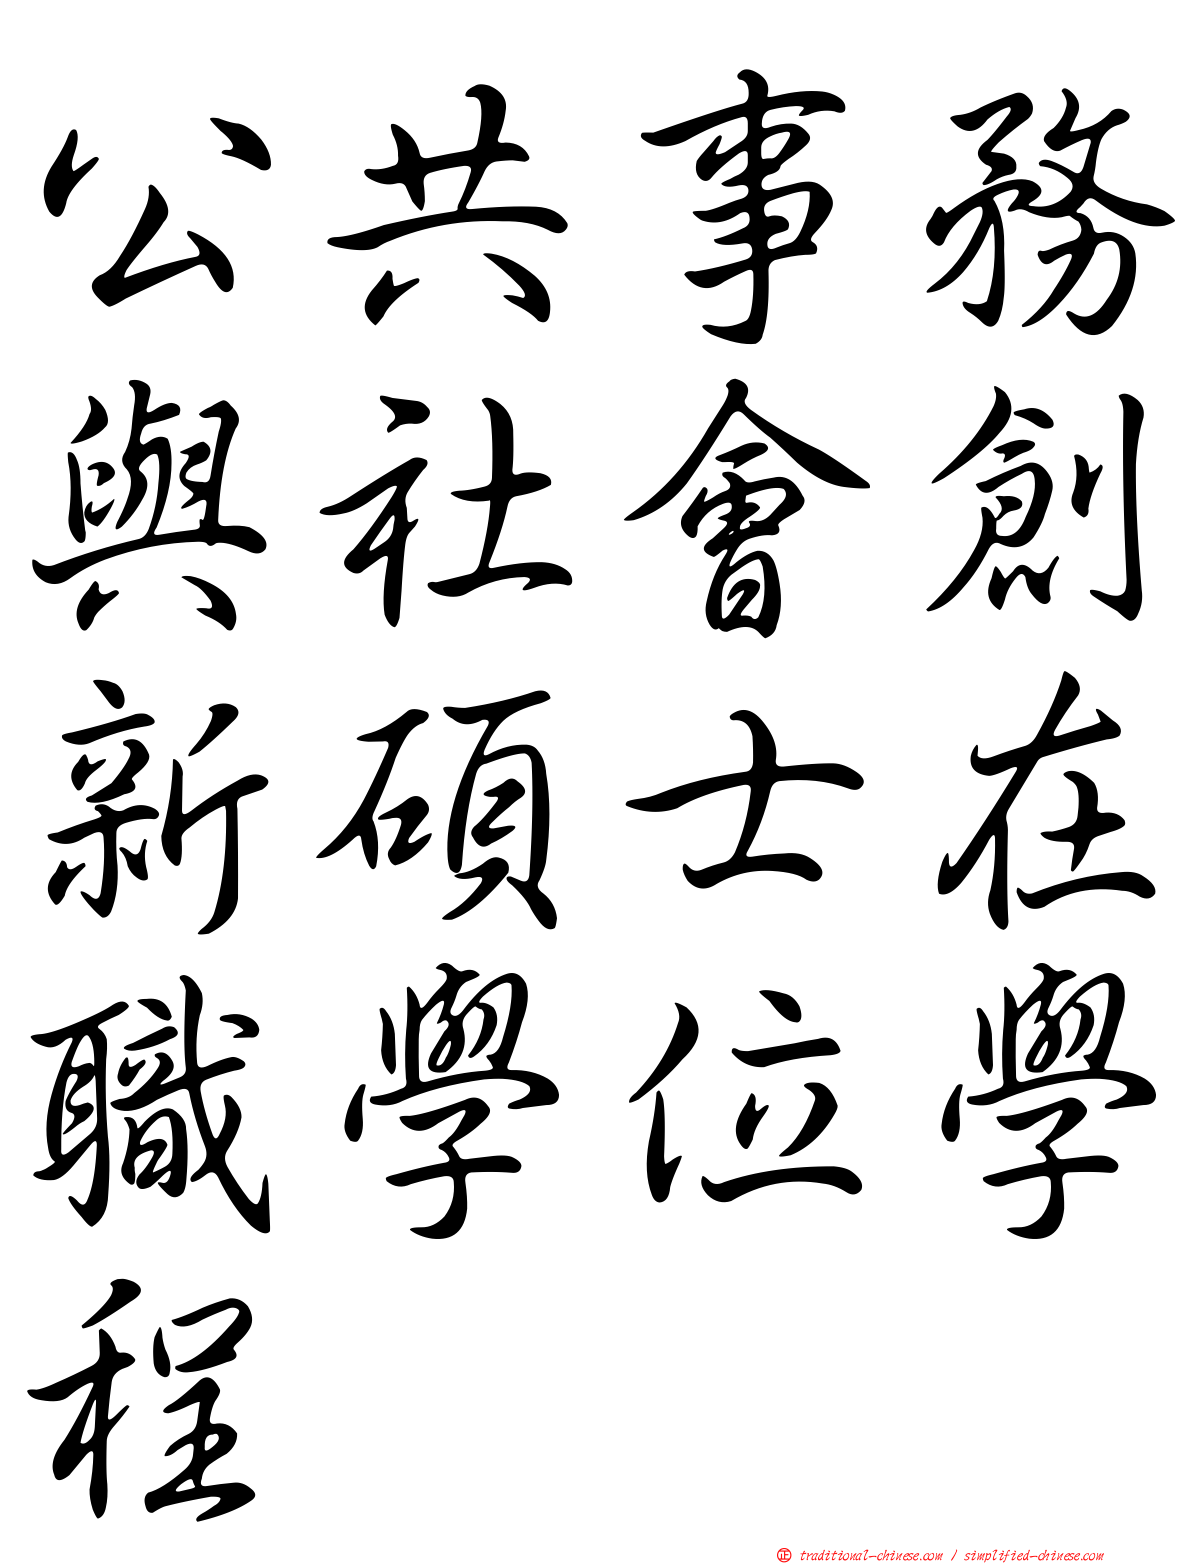 公共事務
與社會創
新碩士在
職學位學
程
㊣ traditional-chinese.com / simplified-chinese.com